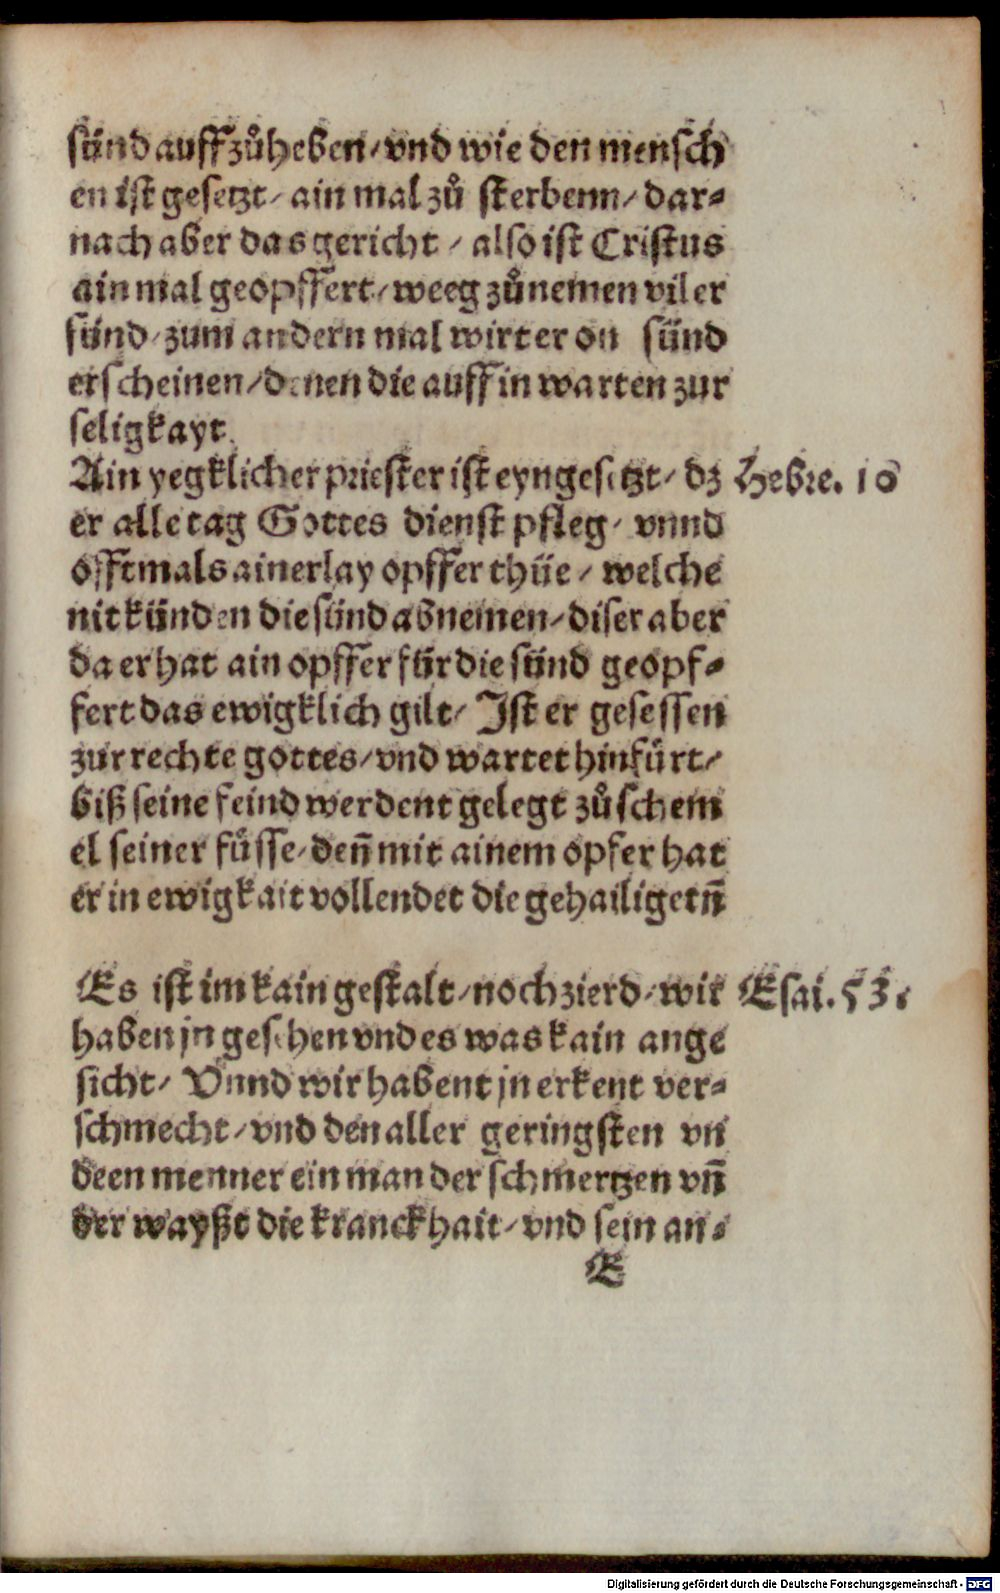 sünd auffzůheben/ vnd wie den mensch
en ist gesetzt/ ain mal zů sterbenn/ dar⸗
nach aber das gericht/ also ist Cristus
ain mal geopffert/ weeg zůnemen viler
sünd/ zum andern mal wirt er on sünd
erscheinen/ denen die auff in warten zur
seligkayt.
Ain yegklicher priester ist eyngesetzt/ dz Hebre. 10
er alle tag Gottes dienst pfleg/ vnnd
offtmals ainerlay opffer thüe/ welche
nit künden die sünd abnemen/ diser aber
da er hat ain opffer für die sünd geopf⸗
fert das ewigklich gilt/ Ist er gesessen
zur rechte gottes/ vnd wartet hinfürt/
biß seine feind werdent gelegt zů schem
el seiner füsse/ deñ mit ainem opfer hat
er in ewigkait vollendet die gehailigetñ
Es ist im kain gestalt/ noch zierd/ wir Esai. 53.
haben jn gesehen vnd es was kain ange
sicht/ Vnnd wir habent jn erkent ver⸗
schmecht/ vnd den aller geringsten vn
deen menner ein man der schmertzen vñ
der wayßt die kranckhait/ vnd sein an⸗
E
Digitalisierung gefördert durch die Deutsche Forschungsgemeinschaft - DFG